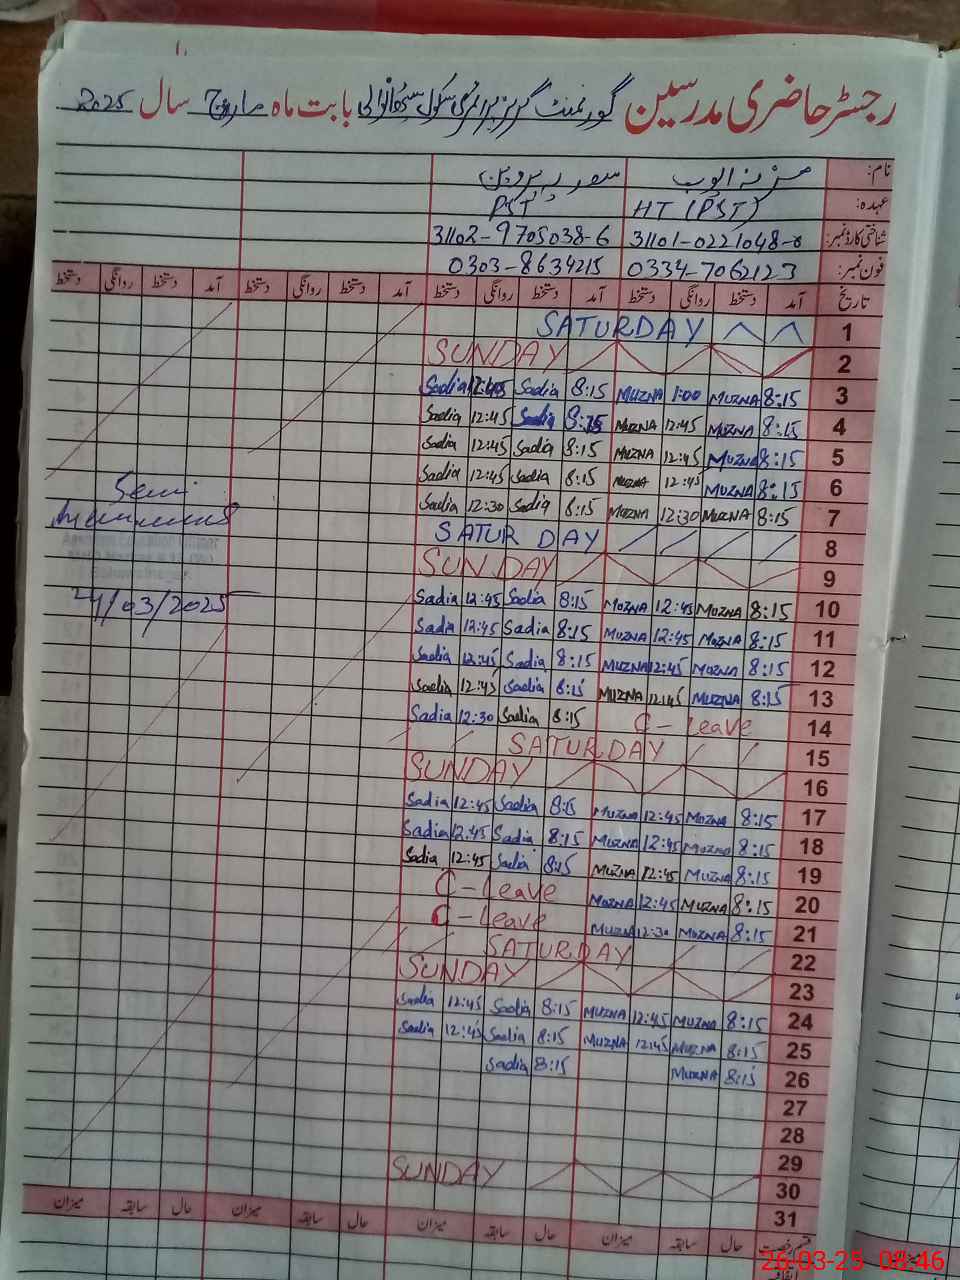 رجسٹر حاضری مدرسین گورنمنٹ گرلز پرائمری سکول بابت ماہ مارچ سال 2025
نام:
عہدہ: HT (PST) PST
شناختی کارڈ نمبر: 31101-0221048- 31102-9705038-6
فون نمبر: 0334-7062123 0303-8634215
تاریخ آمد دستخط روانگی دستخط آمد دستخط روانگی دستخط آمد دستخط روانگی دستخط آمد دستخط روانگی دستخط
SATURDAY 1
SUNDAY 2
Sadia 12:45 Sadia 8:15 MUZNA 1:00 MUZNA 8:15 3
Sadia 12:45 Sadia 8:15 MUZNA 12:45 MUZNA 8:15 4
Sadia 12:45 Sadia 8:15 MUZNA 12:45 MUZNA 8:15 5
Sadia 12:45 Sadia 8:15 MUZNA 12:45 MUZNA 8:15 6
Sadia 12:30 Sadia 8:15 MUZNA 12:30 MUZNA 8:15 7
SATUR DAY 8
SUNDAY 9
Sadia 12:45 Sadia 8:15 MUZNA 12:45 MUZNA 8:15 10
Sadia 12:45 Sadia 8:15 MUZNA 12:45 MUZNA 8:15 11
Sadia 12:45 Sadia 8:15 MUZNA 12:45 MUZNA 8:15 12
Sadia 12:45 Sadia 8:15 MUZNA 12:45 MUZNA 8:15 13
Sadia 12:30 Sadia 8:15 C-leave 14
SATURDAY 15
SUNDAY 16
Sadia 12:45 Sadia 8:15 MUZNA 12:45 MUZNA 8:15 17
Sadia 12:45 Sadia 8:15 MUZNA 12:45 MUZNA 8:15 18
Sadia 12:45 Sadia 8:15 MUZNA 12:45 MUZNA 8:15 19
C-leave MUZNA 12:45 MUZNA 8:15 20
C-leave MUZNA 12:30 MUZNA 8:15 21
SATURDAY 22
SUNDAY 23
Sadia 12:45 Sadia 8:15 MUZNA 12:45 MUZNA 8:15 24
Sadia 12:45 Sadia 8:15 MUZNA 12:45 MUZNA 8:15 25
Sadia 8:15 MUZNA 8:15 26
27
28
29
SUNDAY 30
31
24/03/2025
قسم رخصت حال سابقہ میزان حال سابقہ میزان حال سابقہ میزان حال سابقہ میزان
26-03-25 08:46